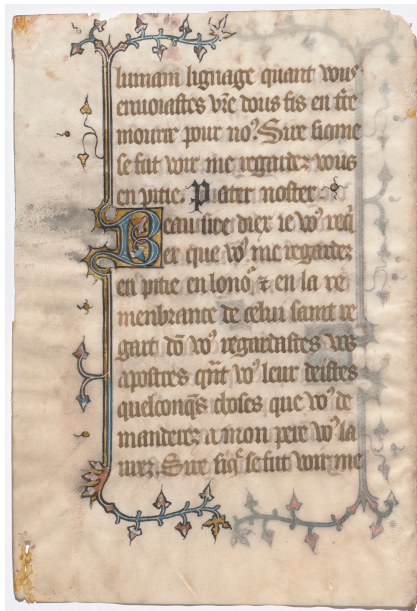 lumain lignage quant vous
envoiastes vr̄e dous fis en t̄re
mourir pour no⁹. Sire si q̄me
se fut voir me regardez vous
en pitie. Pater noster.
Beau sire diex ie vo⁹ req̄
er que vo⁹ me regardez
en pitie en lono᷑ ⁊ en la re
menbrance de celui saint re
gart dō vo⁹ regardastes vos
apostres q̄nt vo⁹ leur deistes
quelconq̄s choses que vo⁹ de
manderez a mon pere vo⁹ la
urez. Sire siq̄ se fut voir me